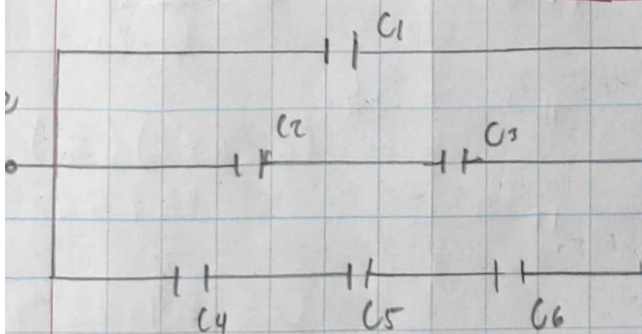 C1
C2 C3
C4 C5 C6